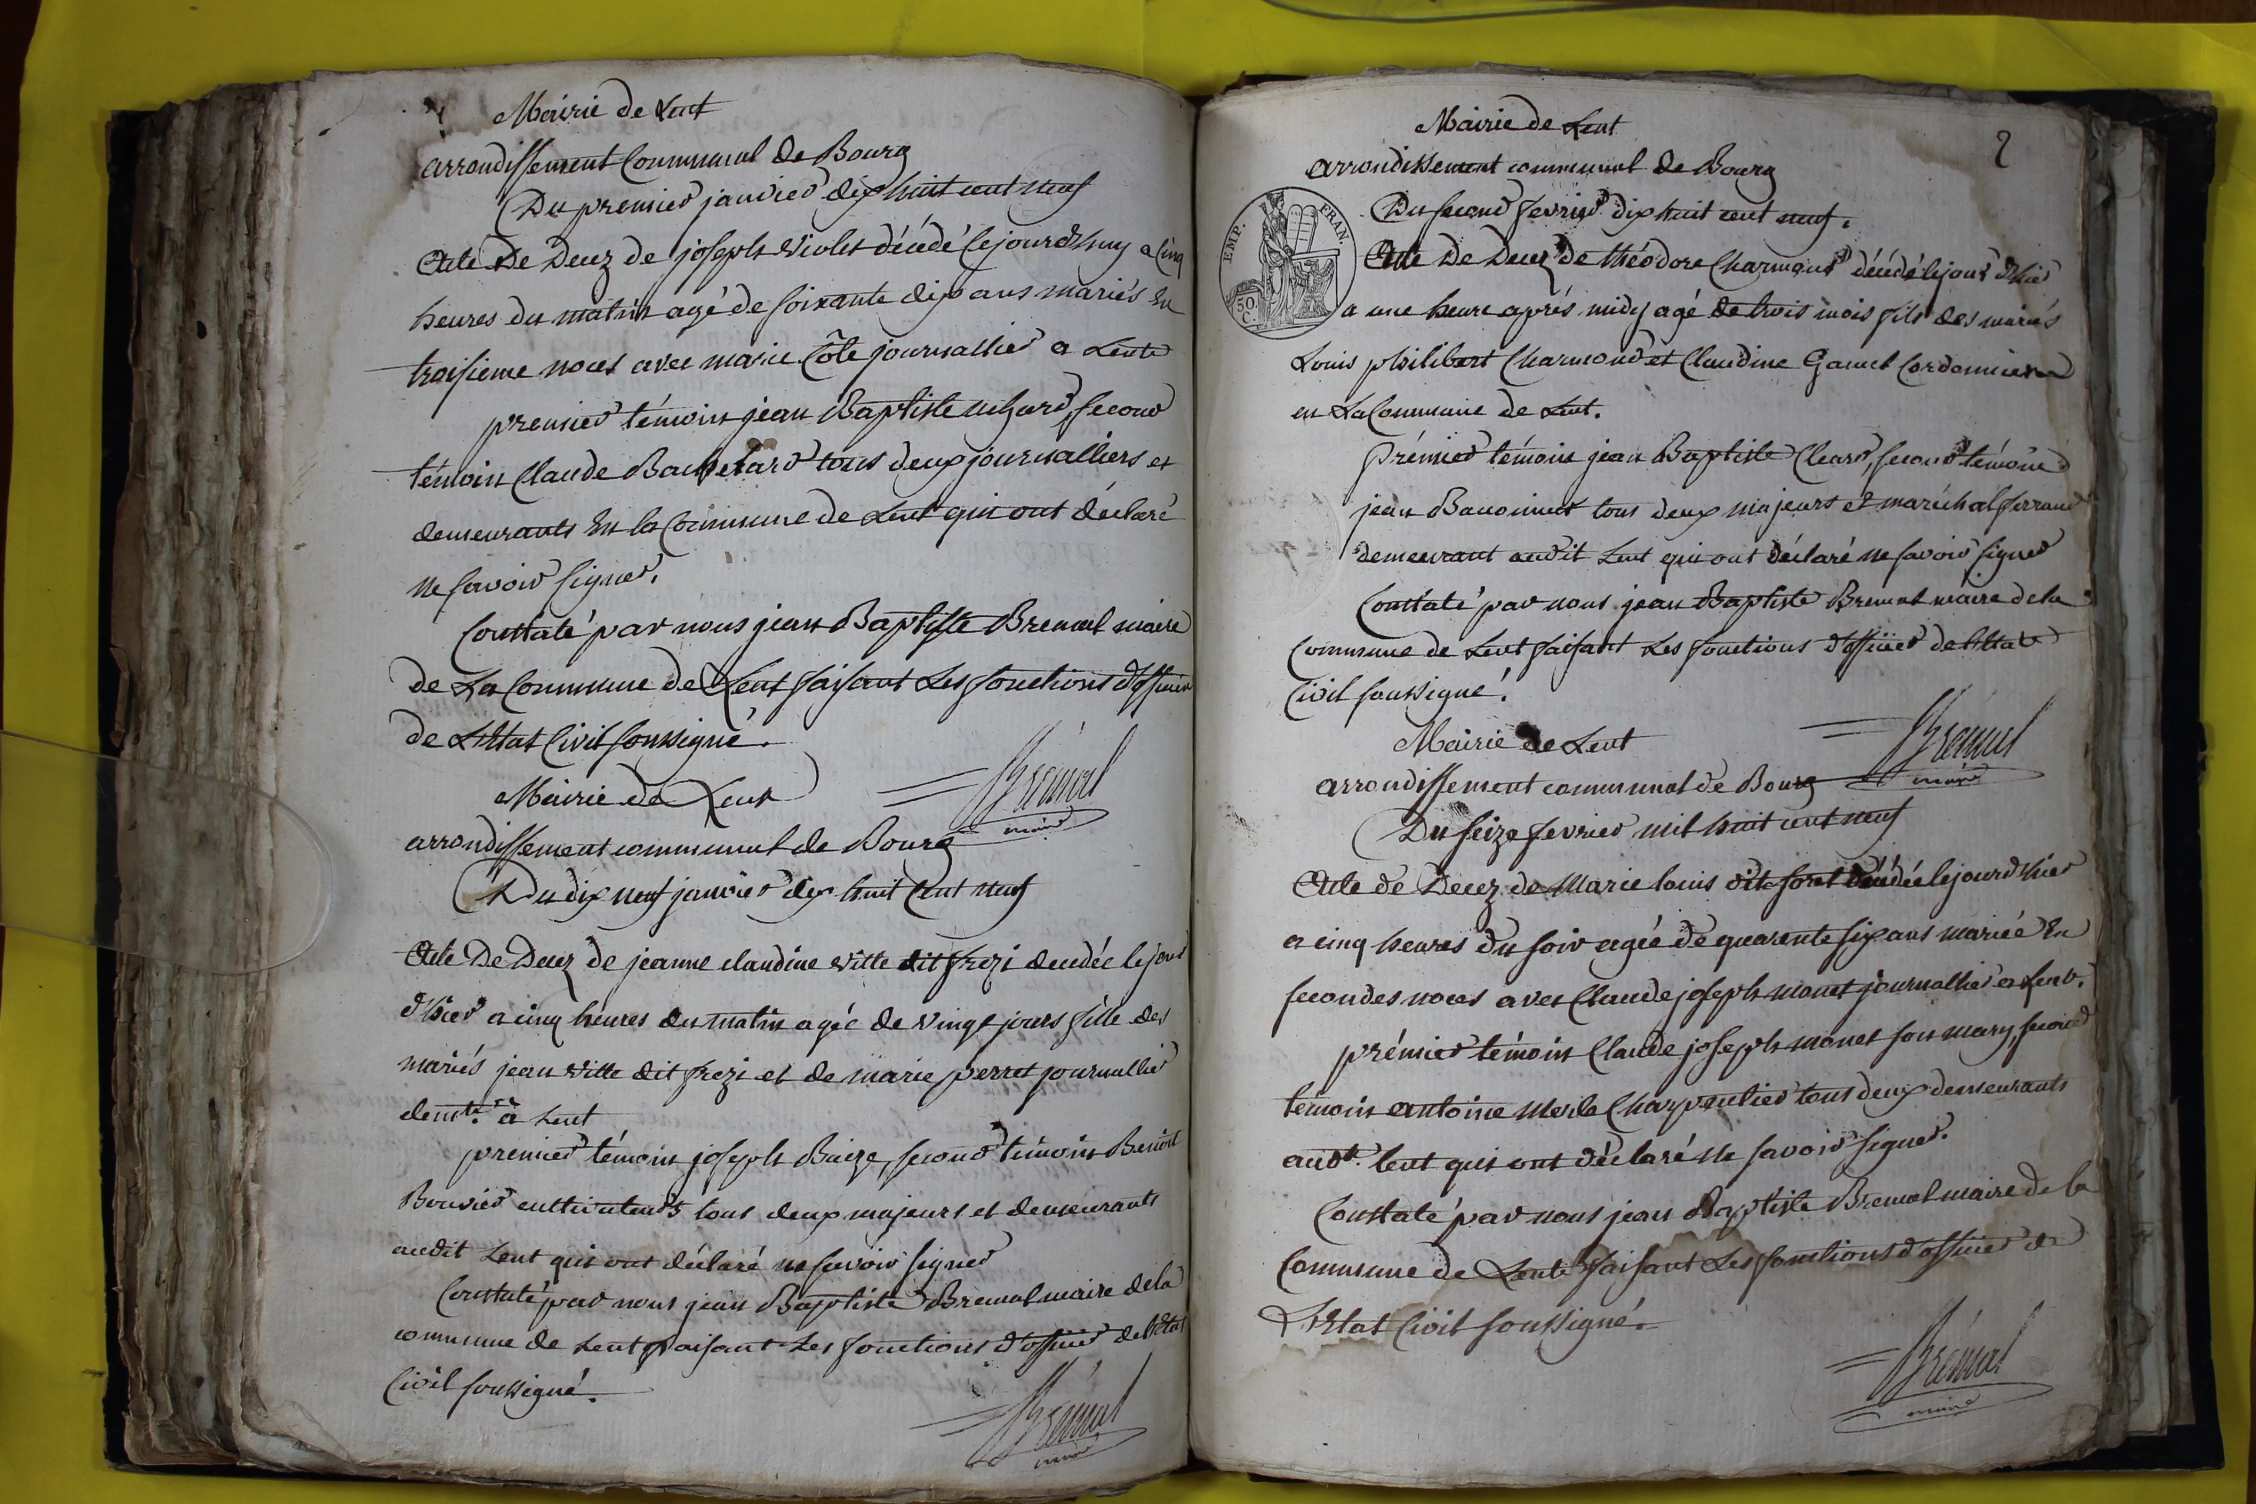 Mairie de Lent
arrondissement Communal de Bourg
Du premier janvier dix huit cent neuf
Acte De Decez de joseph Violet décédé Cejourdhuy a Cinq
heures du matin agé de soixante dix ans mariés En
troisieme noces avec marie Côte journallier a Lent
premier témoin jean Baptiste second
témoin Claude tous deux journalliers et
demeurants En la Commune de Lent qui ont déclaré
ne savoir signer.
Constaté par nous jean Baptiste Bremal maire
de La Commune de Lent faisant Les fonctions d'officier
de L'Etat Civil soussigné.
Brémal
maire
Mairie de Lent
arrondissement communal de Bourg
Du dix neuf janvier dix huit Cent neuf
Acte De Decez de jeanne claudine Vitte dit frezi decedée le jour
d'hier a cinq heures du matin agée de vingt jours fille des
mariés jean Vitte dit frezi et de marie perret journallier
demts. à Lent
premier témoin joseph Buize, second témoin Benoit
Bouvier cultivateurs tous deux majeurs et demeurants
audit Lent qui ont déclaré ne savoir signer
Constaté par nous jean Baptiste Bremal maire dela
commune de Lent faisant Les fonctions d'officier de l'Etat
Civil soussigné.
Brémal
maire
2
Mairie de Lent
arrondissement communal de Bourg
EMP. FRAN.
50 C.
Du second fevrier dix huit cent neuf.
Acte De Decez de théodore Charmond décédé le jour d'hier
a une heure aprés midy agé de trois mois fils des mariés
Louis philibert Charmond et Claudine Gamet Cordonnier
en La Commune de Lent.
Prémier témoin jean Baptiste Cleard, second témoin
jean tous deux majeurs et maréchal ferrand
demeurant audit Lent qui ont déclaré ne savoir signer
Constaté par nous jean Baptiste Bremal maire dela
Commune de Lent faisant Les fonctions d'officier de l'Etat
Civil soussigné.
Brémal
maire
Mairie de Lent
arrondissement communal de Bourg
Du seize fevrier mil huit cent neuf
Acte de Decez de Marie louis dite foret décédée le jour d'hier
a cinq heures du soir agée de quarente six ans mariée En
secondes noces avec Claude joseph monet journallier a Lent.
prémier témoin Claude joseph monet son mary, second
témoin antoine Merle Charpentier tous deux demeurants
audt. lent qui ont déclaré Ne savoir signer.
Constaté par nous jean Baptiste Bremal maire de la
Commune de Lent faisant Les fonctions d'officier de
L'Etat Civil soussigné.
Brémal
maire